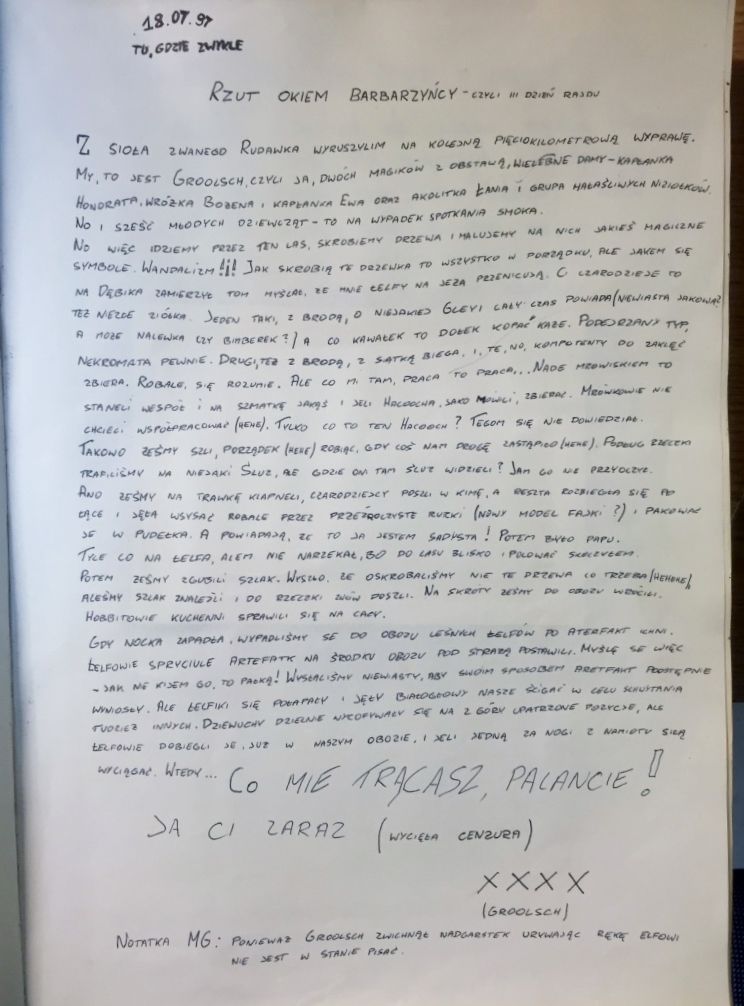 18.07.97
TU, GDZIE ZWYKLE
RZUT OKIEM BARBARZYŃCY - CZYLI III DZIEŃ RAJDU
Z SIOŁA ZWANEGO RUDAWKA WYRUSZYLIM NA KOLEJNĄ PIĘCIOKILOMETROWĄ WYPRAWĘ.
MY, TO JEST GROOLSCH, CZYLI JA, DWÓCH MAGIKÓW Z OBSTAWĄ, WIELEBNE DAMY - KAPŁANKA
HONORATA, WRÓŻKA BOŻENA I KAPŁANKA EWA ORAZ AKOLITKA ŁANIA I GRUPA HAŁAŚLIWYCH NIZIOŁKÓW.
NO I SZEŚĆ MŁODYCH DZIEWCZĄT - TO NA WYPADEK SPOTKANIA SMOKA.
NO WIĘC IDZIEMY PRZEZ TEN LAS, SKROBIEMY DRZEWA I MALUJEMY NA NICH JAKIEŚ MAGICZNE
SYMBOLE. WANDALIZM!¡! JAK SKROBIĄ TE DRZEWKA TO WSZYSTKO W PORZĄDKU, ALE JAKEM SIĘ
NA DĘBIKA ZAMIERZYŁ TOM MYŚLAŁ, ŻE MNIE ŁELFY NA JEŻA PRZENICUJĄ. CI CZARODZIEJE TO
TEŻ NIEZŁE ZIÓŁKA. JEDEN TAKI, Z BRODĄ, O NIEJAKIEJ GLEYI CAŁY CZAS POWIADA (NIEWIASTA JAKOWAŚ
A MOŻE NALEWKA CZY BIMBEREK?) A CO KAWAŁEK TO DOŁEK KOPAĆ KAŻE. PODEJRZANY TYP,
NEKROMATA PEWNIE. DRUGI, TEŻ Z BRODĄ, Z SIATKĄ BIEGA, I, TE, NO, KOMPONENTY DO ZAKLĘĆ
ZBIERA. ROBALE, SIĘ ROZUMIE. ALE CO MI TAM, PRACA TO PRACA... NADE MROWISKIEM TO
STANELI WESPÓŁ I NA SZMATKĘ JAKĄŚ I JELI HACOOCHA, JAKO MÓWILI, ZBIERAĆ. MRÓWKOWIE NIE
CHCIELI WSPÓŁPRACOWAĆ (HEHE). TYLKO CO TO TEN HACOOCH? TEGOM SIĘ NIE DOWIEDZIAŁ.
TAKOWO ŻEŚMY SZLI, PORZĄDEK (HEHE) ROBIĄC, GDY COŚ NAM DROGĘ ZASTĄPIŁO (HEHE). PODŁUG RZECZKI
TRAFILIŚMY NA NIEJAKI ŚLUZ, ALE GDZIE ONI TAM ŚLUZ WIDZIELI? JAM GO NIE PRZYUCZYŁ.
ANO ŻEŚMY NA TRAWKĘ KLAPNELI, CZARODZIEJCY POSZLI W KIMĘ, A RESZTA ROZBIEGŁA SIĘ PO
ŁĄCE I JĘŁA WSYSAĆ ROBALE PRZEZ PRZEŹROCZYSTE RURKI (NOWY MODEL FAJKI?) I PAKOWAĆ
JE W PUDEŁKA. A POWIADAJĄ, ŻE TO JA JESTEM SADYSTĄ! POTEM BYŁO PAPU.
TYLE CO NA ŁELFA, ALEM NIE NARZEKAŁ, BO DO LASU BLISKO I POLOWAĆ SKOCZYŁEM.
POTEM ŻEŚMY ZGUBILI SZLAK. WYSZŁO, ŻE OSKROBALIŚMY NIE TE DRZEWA CO TRZEBA (HEHEHE),
ALEŚMY SZLAK ZNALEŹLI I DO RZECZKI ZNÓW DOSZLI. NA SKROTY ŻEŚMY DO OBOZU WRÓCILI.
HOBBITOWIE KUCHENNI SPRAWILI SIĘ NA CACY.
GDY NOCKA ZAPADŁA, WYPADLIŚMY SE DO OBOZU LEŚNYCH ŁELFÓW PO ATERFAKT ICHNI.
ŁELFOWIE SPRYCIULE ARTEFATK NA ŚRODKU OBOZU POD STRAŻĄ POSTAWILI. MYŚLĘ SE WIĘC
- JAK NE KIJEM GO, TO PAŁKĄ! WYSŁALIŚMY NIEWIASTY, ABY SWOIM SPOSOBEM ARETFAKT PODSTĘPNIE
WYNIOSŁY. ALE ŁELFIKI SIĘ POŁAPAŁY I JĘŁY BIAŁOGŁOWY NASZE ŚCIGAĆ W CELU SCHWYTANIA
TUDZIEŻ INNYCH. DZIEWUCHY DZIELNIE WYCOFYWAŁY SIĘ NA Z GÓRY UPATRZONE POZYCJE, ALE
ŁELFOWIE DOBIEGLI JE, JUŻ W NASZYM OBOZIE, I JELI JEDNĄ ZA NOGI Z NAMIOTU SIŁĄ
WYCIĄGAĆ. WTEDY... CO MIE TRĄCASZ, PALANCIE!
JA CI ZARAZ (WYCIĘŁA CENZURA)
XXXX
(GROOLSCH)
NOTATKA MG: PONIEWAŻ GROOLSCH ZWICHNĄŁ NADGARSTEK URYWAJĄC RĘKĘ ELFOWI
NIE JEST W STANIE PISAĆ.